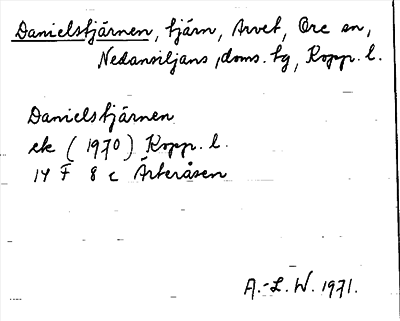 Danielstjärnen, tjärn, Arvet, Ore sn,
Nedansiljans doms. tg, Kopp. l.
Danielstjärnen
ek (1970) Kopp. l.
14 F 8 c Ärteråsen
A.-L. W. 1971.